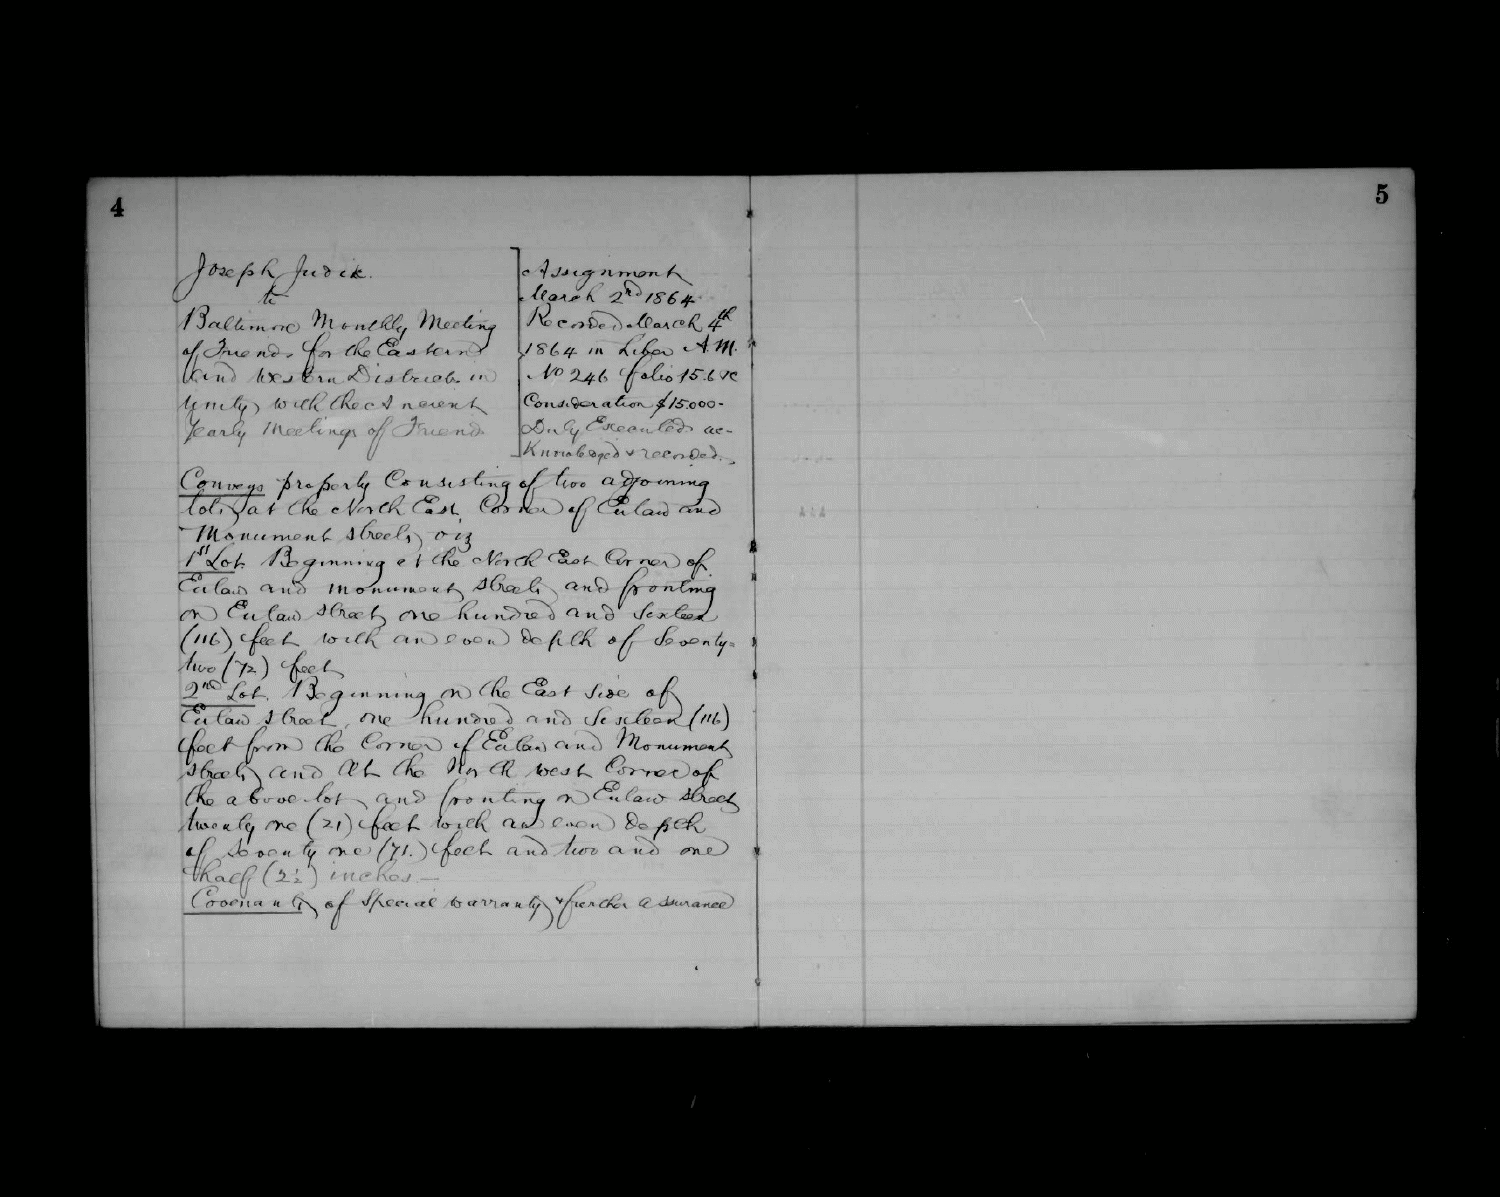 4
Joseph Judik.
to
Baltimore Monthly Meeting
of Friends for the Eastern
and Western Districts in
unity with the Ancient
Yearly Meetings of Friends
Assignment
March 2nd 1864
Recorded March 4th
1864 in Liber A.M.
No 246 folio 156 &c
Consideration $15.000-
Duly Executed ac-
knowledged & recorded.
Conveys property Consisting of two adjoining
lots, at the North East Corner of Eutaw and
Monument streets, viz
1st Lot. Beginning at the North East Corner of
Eutaw and monument streets and fronting
on Eutaw street one hundred and sixteen
(116) feet with an even depth of Seventy=
two (72) feet
2nd Lot. Beginning on the East Side of
Eutaw street, one hundred and Sixteen (116)
feet from the Corner of Eutaw and Monument
streets and at the North west Corner of
the above lot, and fronting on Eutaw street
twenty one (21) feet with an even depth
of Seventy one (71.) feet and two and one
half (2½) inches—
Covenants of Special warranty & further assurance
5